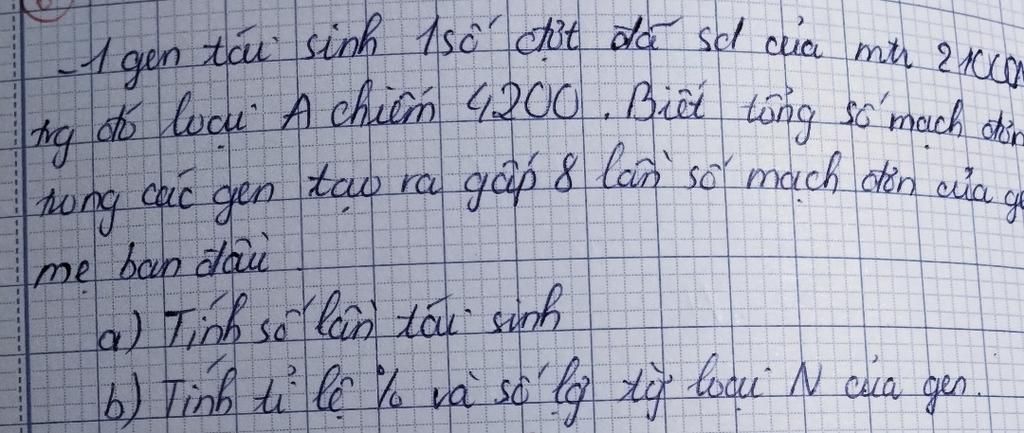 - 1 gen tái sinh 1 số đợt đã sd của mtr
trg đó loại A chiếm 4200. Biết tổng số mạch đơn
trong các gen tạo ra gấp 8 lần số mạch đơn của
mẹ ban đầu
a) Tính số lần tái sinh
b) Tính tỉ lệ % và số lg từg loại N của gen.